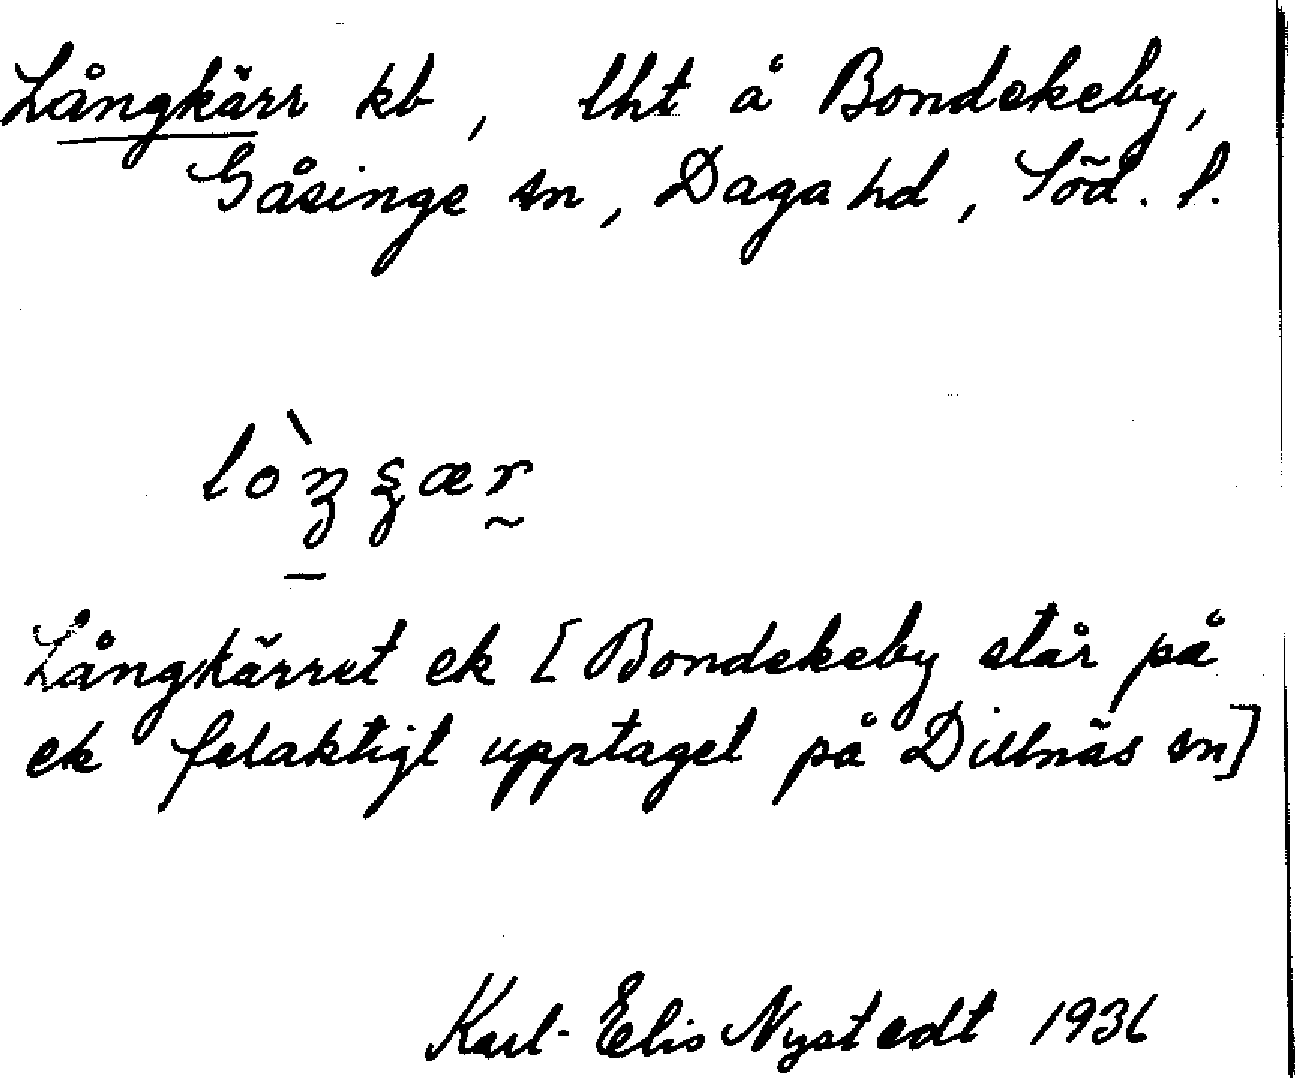 Långkärr kb, lht å Bondekeby,
Gåsinge sn, Daga hd, Söd. l.
Långkärret ek [Bondekeby står på
ek felaktigt upptaget på Dillnäs sn]
Karl-Elis Nystedt 1936